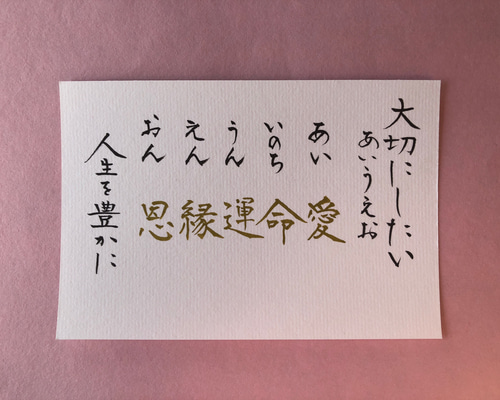 大切にしたい
あいうえお
あい 愛
いのち 命
うん 運
えん 縁
おん 恩
人生を豊かに